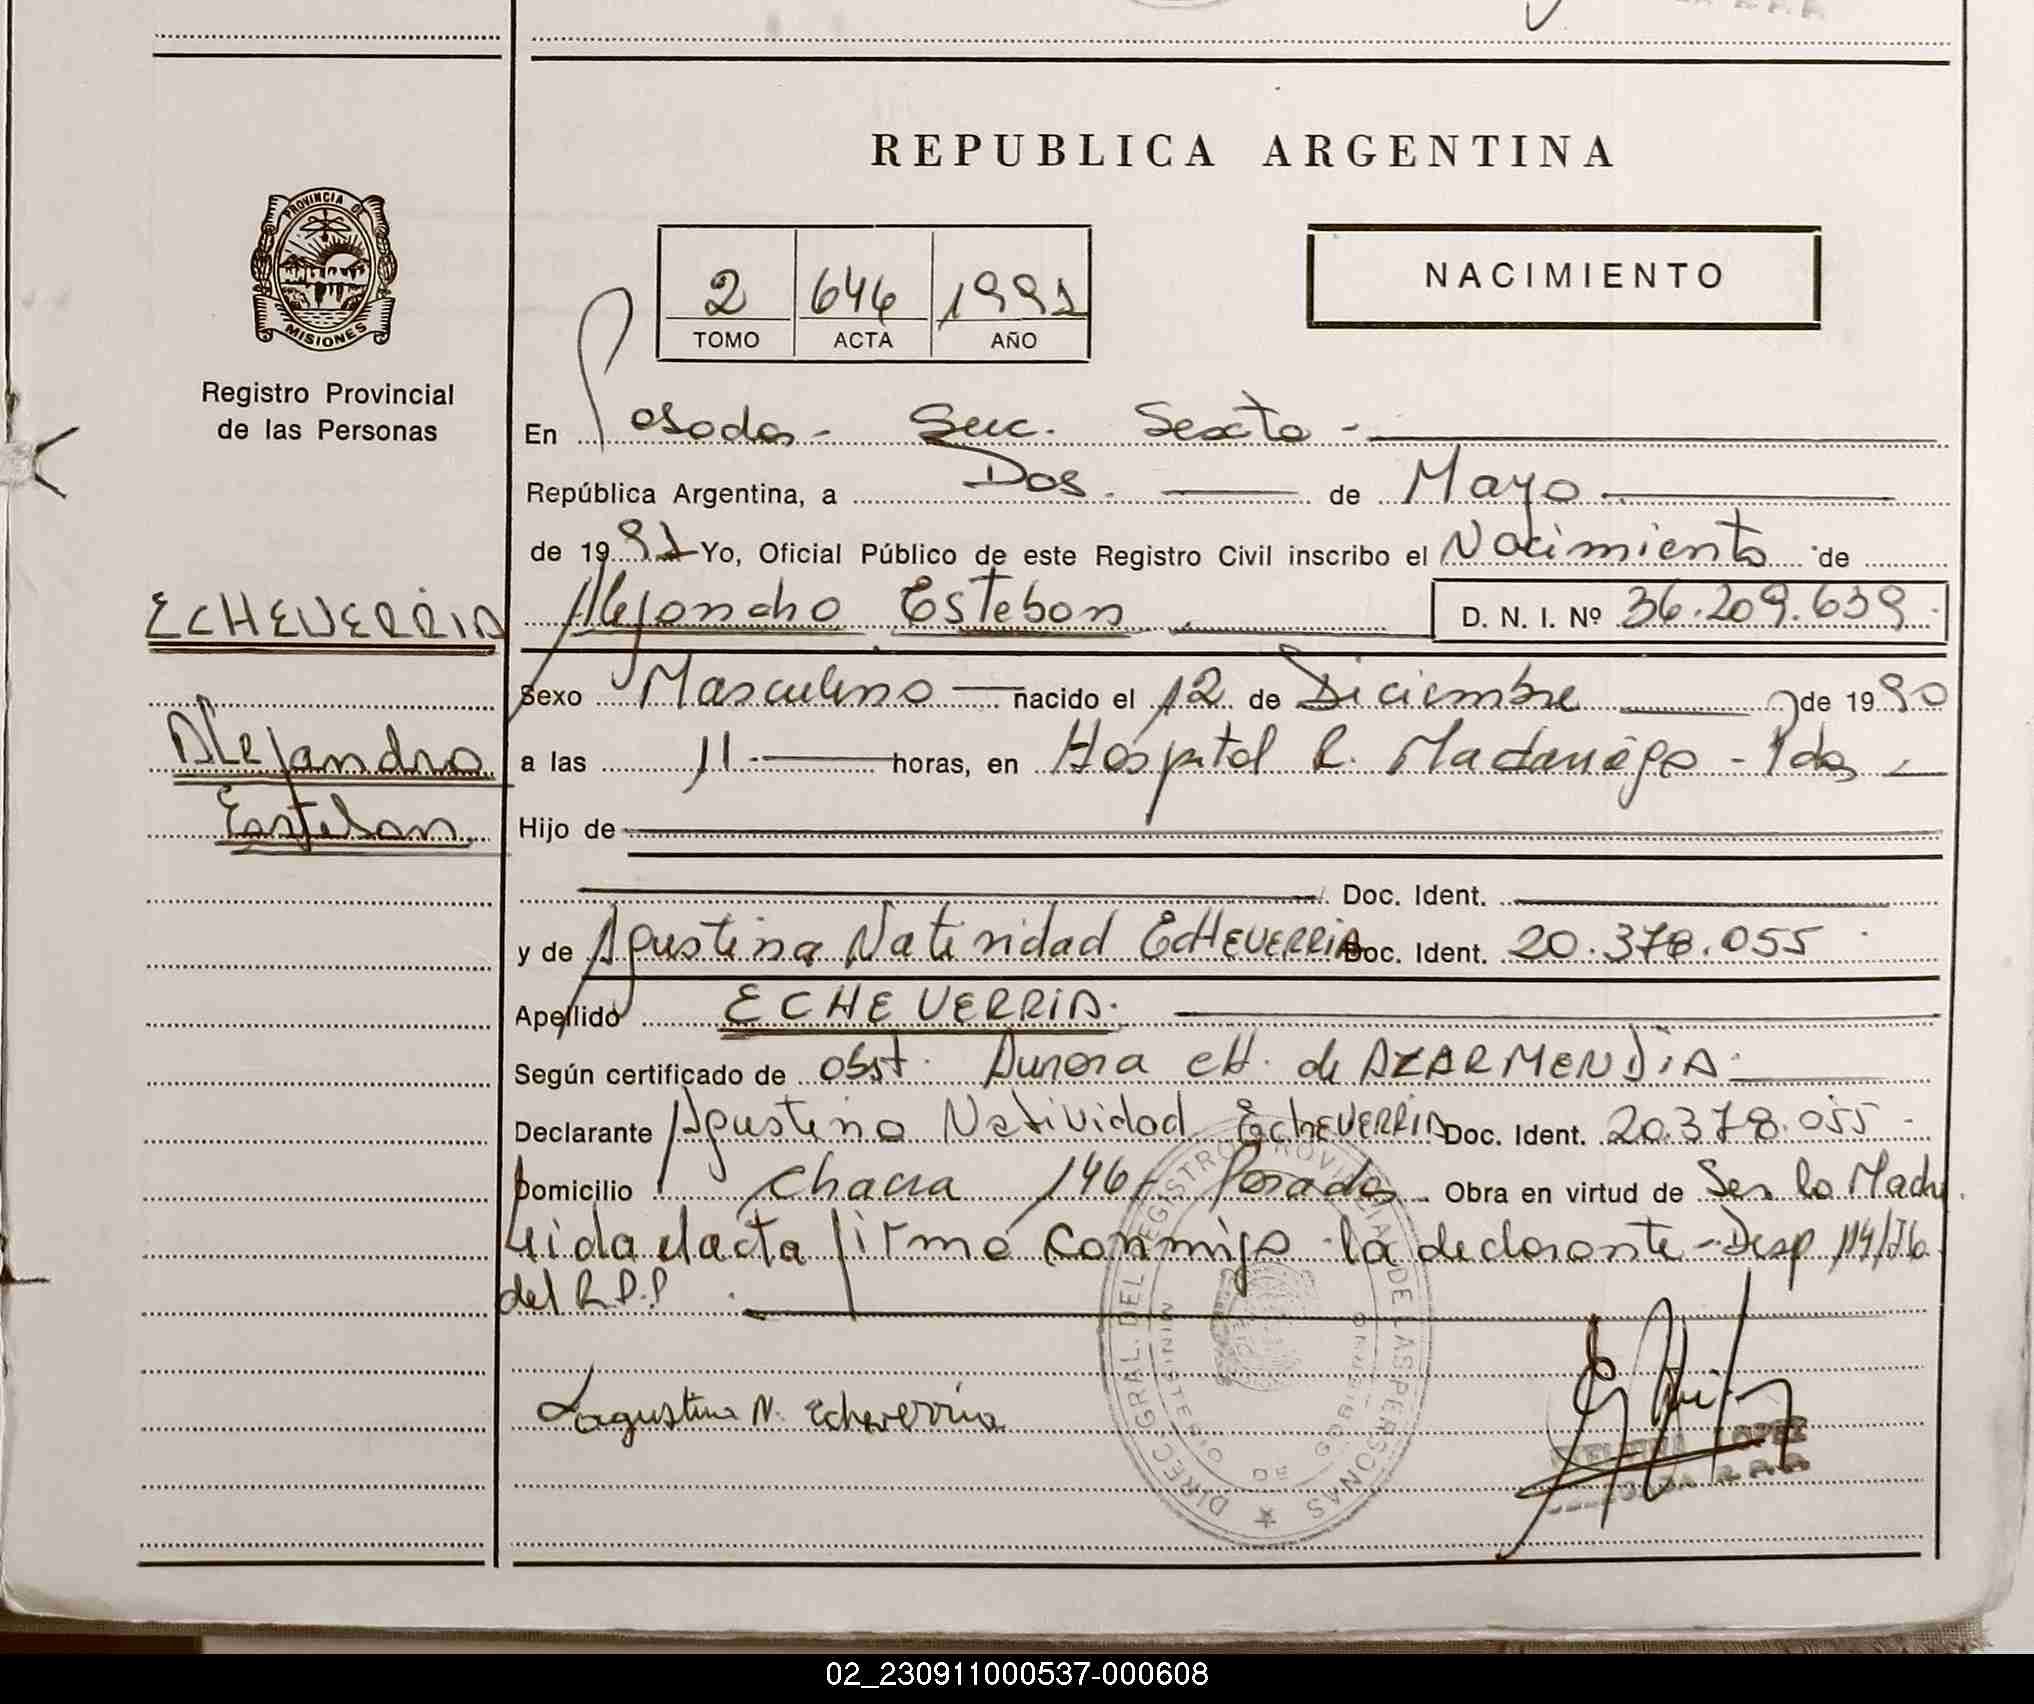 REPUBLICA ARGENTINA
PROVINCIA DE
MISIONES
Registro Provincial
de las Personas
2 646 1991
TOMO ACTA AÑO
NACIMIENTO
En Posadas - Secc. Sexta -
República Argentina, a Dos. de Mayo
de 1991 Yo, Oficial Público de este Registro Civil inscribo el Nacimiento de
ECHEVERRIA
Alejandro Esteban D. N. I. Nº 36.209.639
Sexo Masculino nacido el 12 de Diciembre de 1990
Alejandro
a las 11 horas, en Hospital R. Madariaga - Pdas
Esteban
Hijo de
Doc. Ident.
y de Agustina Natividad EcHEVERRIA Doc. Ident. 20.378.055
Apellido ECHEVERRIA.
Según certificado de obst. Aurora cH. de AZARMENDIA.
Declarante Agustina Natividad EchEVERRIA Doc. Ident. 20.378.055
Domicilio Chacra 146 - Posadas Obra en virtud de Ser la Madre
Leida el acta firmó conmigo la declarante - Disp 114/76
del R.P.P
Lagustina N. Echeverria
DIREC. GRAL. DEL REGISTRO PROVINCIAL DE LAS PERSONAS
MINISTERIO DE GOBIERNO
LOPEZ
02_230911000537-000608